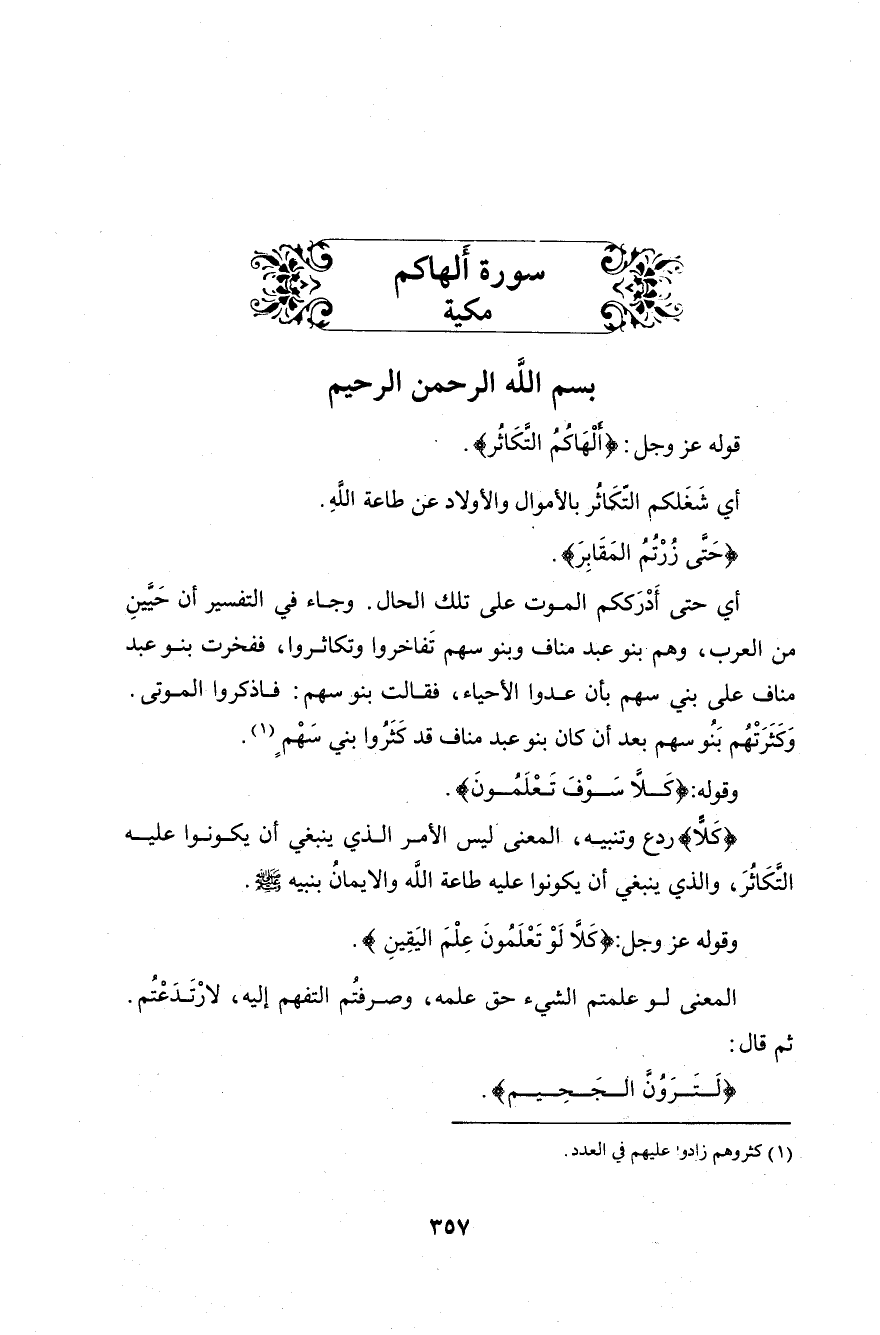 سورة ألهاكم
مكية
بسم اللَّه الرحمن الرحيم
قوله عز وجل: ﴿أَلْهَاكُمُ التَّكَاثُر﴾.
أي شَغَلكم التّكَاثُر بالأموال والأولاد عن طاعة اللَّهِ.
﴿حَتَّى زُرْتُمُ المَقَابِرَ﴾.
أي حتى أَدْرَككم الموت على تلك الحال. وجاء في التفسير أن حَيَّينِ
من العرب، وهم بنو عبد مناف وبنو سهم تَفاخروا وتكاثروا، ففخرت بنو عبد
مناف على بني سهم بأن عدوا الأحياء، فقالت بنو سهم: فاذكروا الموتى.
وَكَثَرَتْهُم بَنُو سهم بعد أن كان بنو عبد مناف قد كَثَرُوا بني سَهْمٍ(١).
وقوله:﴿كَلَّا سَوْفَ تَعْلَمُونَ﴾.
﴿كَلَّا﴾ ردع وتنبيه، المعنى ليس الأمر الذي ينبغي أن يكونوا عليه
التَّكَاثُرَ، والذي ينبغي أن يكونوا عليه طاعة اللَّه والايمانُ بنبيه ﷺ.
وقوله عز وجل:﴿كَلَّا لَوْ تَعْلَمُونَ عِلْمَ اليَقِينِ ﴾.
المعنى لو علمتم الشيء حق علمه، وصرفتُم التفهم إليه، لارْتَدَعْتُم.
ثم قال:
﴿لَتَرَوُنَّ الجَحِيم﴾.
(١) كثروهم زادوا عليهم في العدد.
٣٥٧